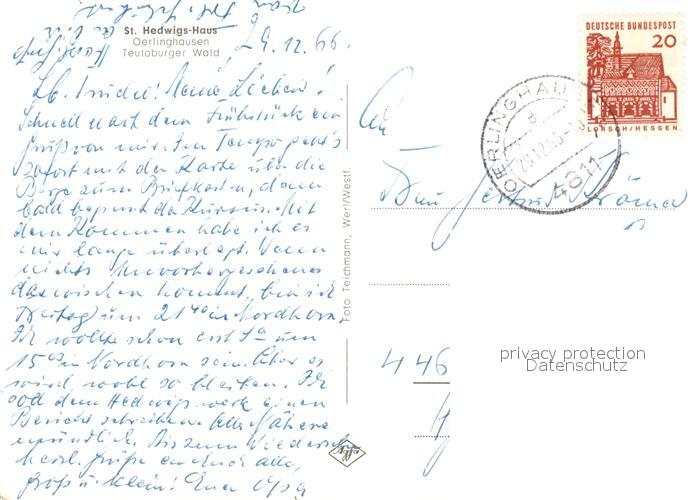 St. Hedwigs-Haus
Oerlinghausen
Teutoburger Wald
29.12.66.
Lb. Trudel! Meine Lieben!
Schnell nach dem Frühstück ein
Gruß von mir. Im Tempo geht's
sofort mit der Karte über die
Berge zum Briefkasten, denn
bald beginnt der Kursus. Mit
dem Kommen habe ich es
mir lange überlegt. Wenn
nichts Unvorhergesehenes
dazwischen kommt, bin ich
Freitag um 21 40 in Nordhorn.
Ich wollte schon erst Sa um
15 03 in Nordhorn sein. Aber es
wird wohl so bleiben. Ich
soll dem Hedwigswerk einen
Bericht schreiben. Alles Nähere
mündlich. Bis zum Wiedersehn
herzl. Grüße an Euch alle,
groß u. klein! Euer Opa
Foto Teichmann, Werl/Westf.
agfa
DEUTSCHE BUNDESPOST
20
LORSCH/HESSEN
OERLINGHAUSEN
d
4811
An
Frau Gertrud Krämer
446
privacy protection
Datenschutz